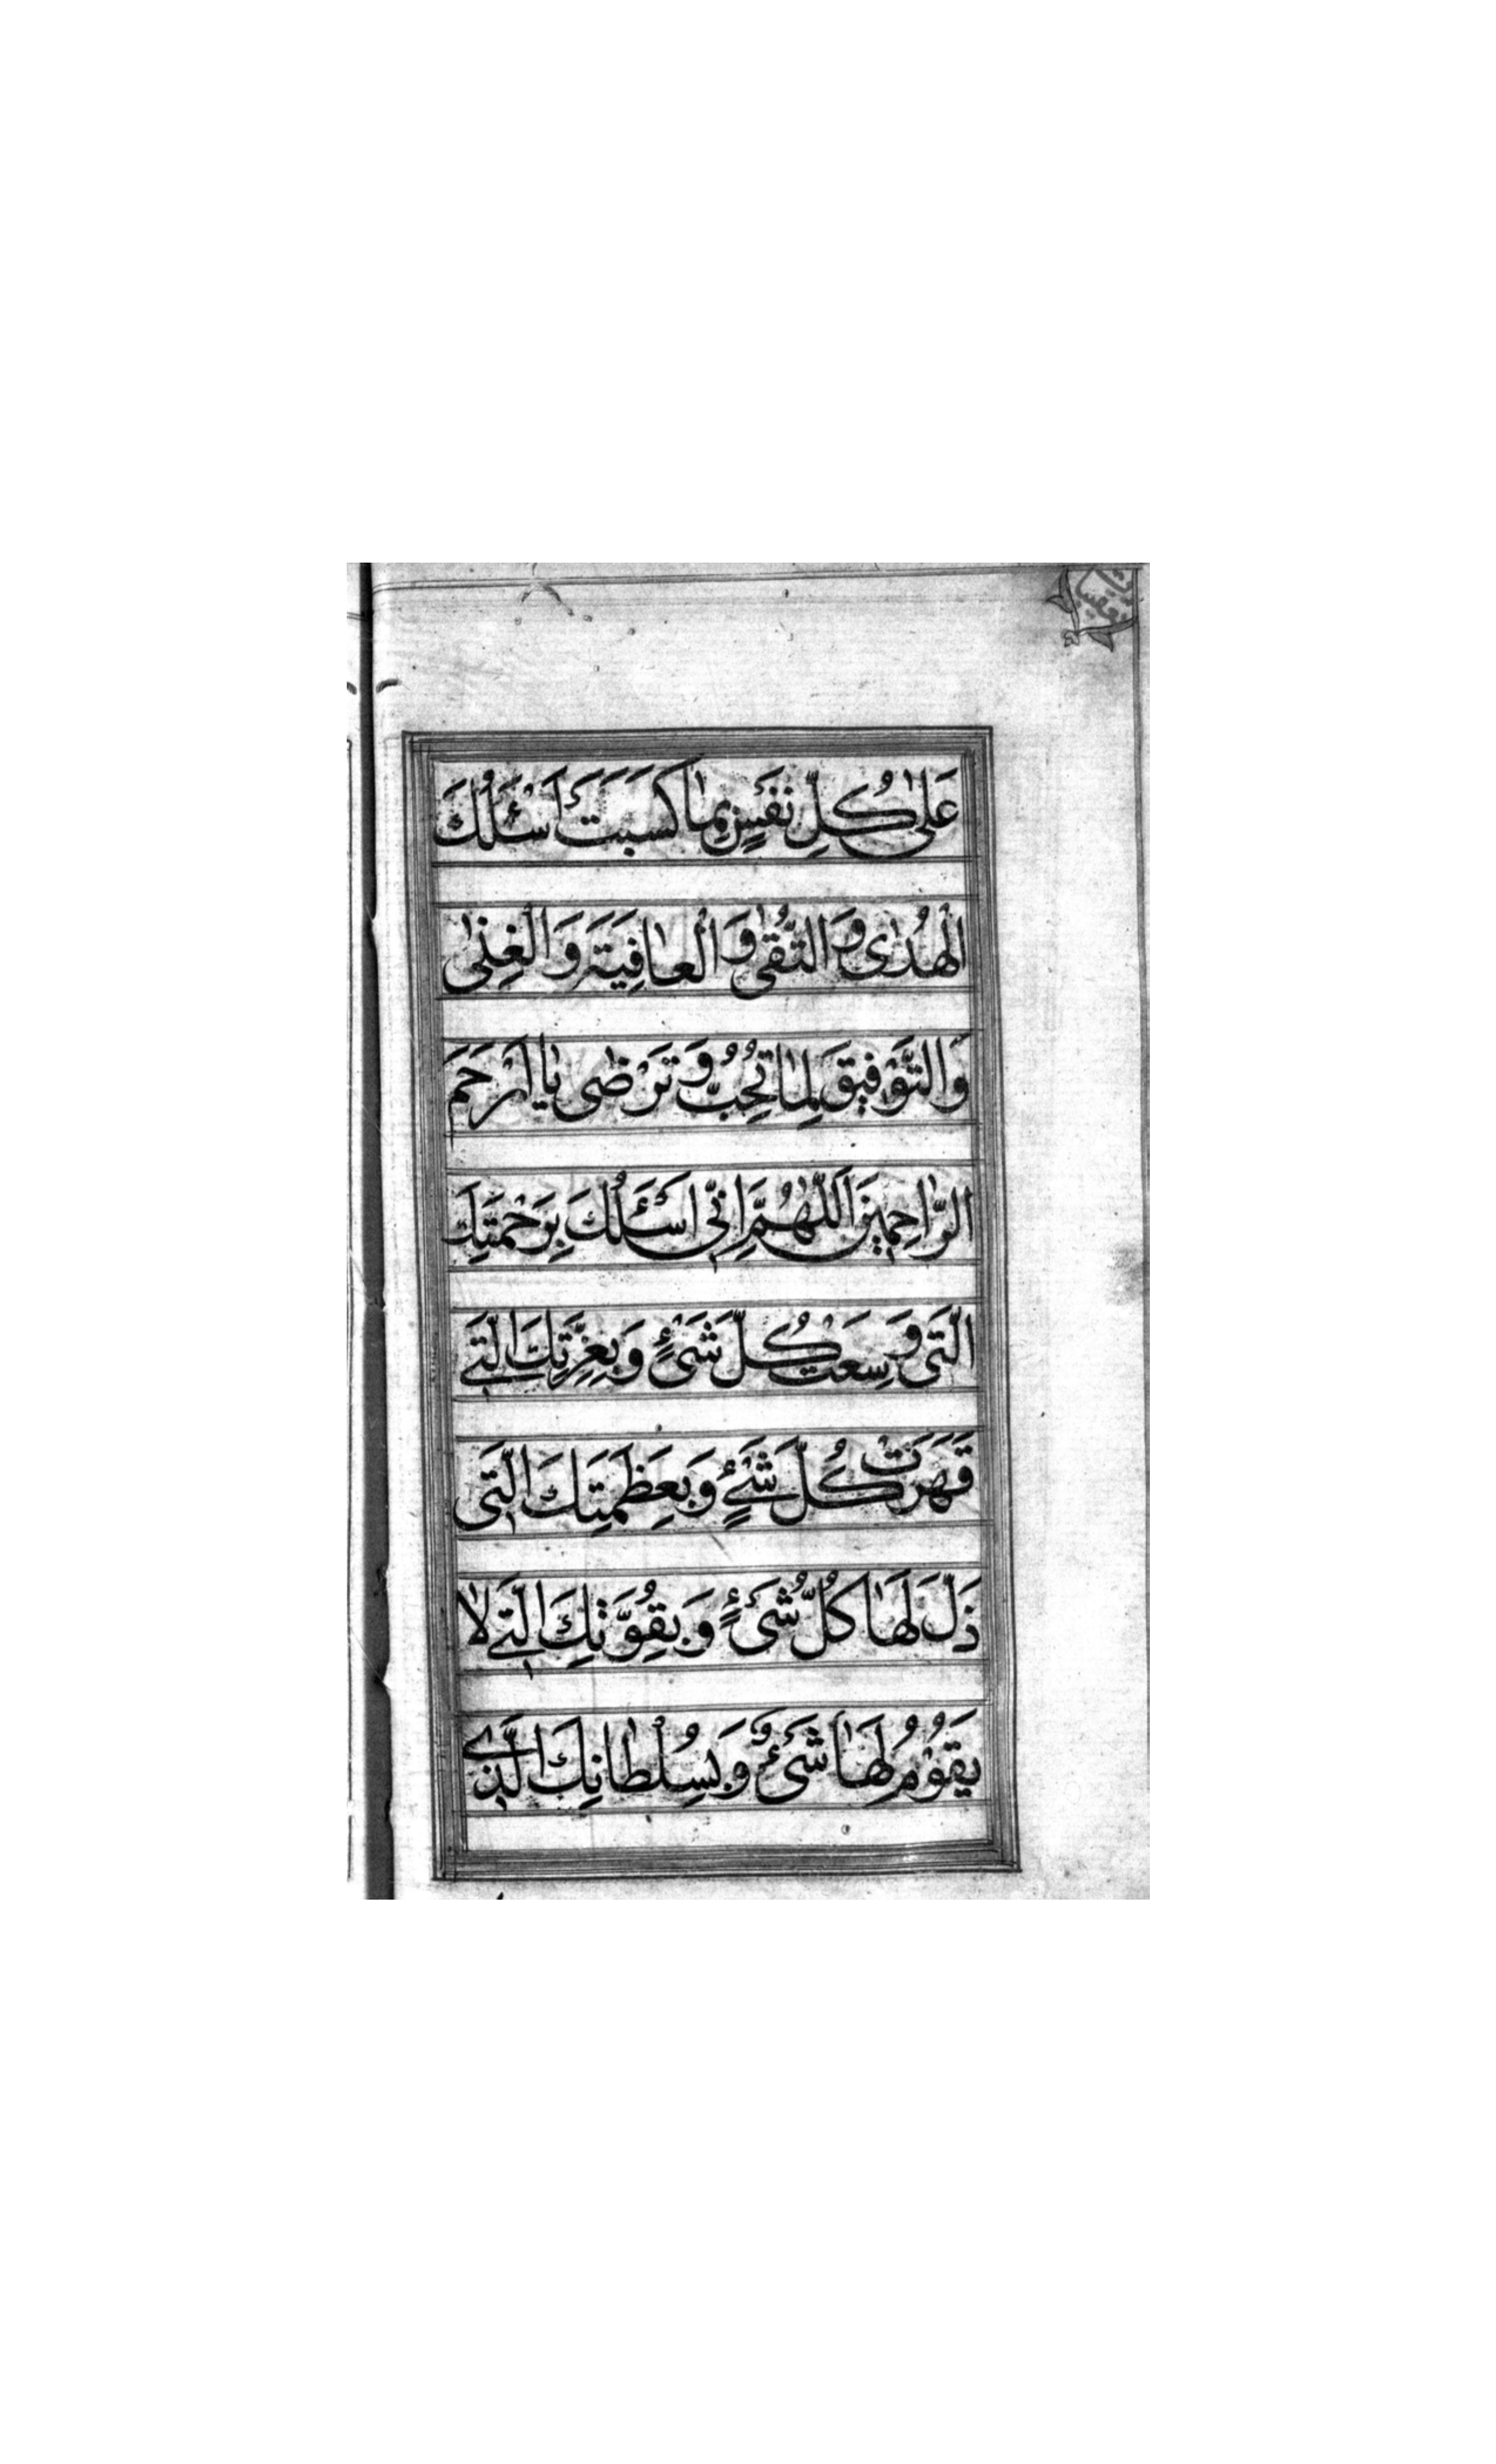 عَلىٰ كُلِّ نَفْسٍ بِمٰا كَسَبَتْ اَسْئَلُكَ
الْهُدٰى وَ التُّقىٰ وَ الْعٰافِيَةَ وَ الْغِنٰى
وَ التَّوْفِيقَ لِمٰا تُحِبُّ وَ تَرْضٰى يٰا اَرْحَمَ
الرّٰاحِمِينَ اَللّٰهُمَّ اِنّى اَسْئَلُكَ بِرَحْمَتِكَ
الَّتى وَسِعَتْ كُلَّ شَىْءٍ وَ بِعِزَّتِكَ الَّتے
قَهَرَتْ كُلَّ شَےْءٍ وَ بِعَظَمَتِكَ الَّتى
ذَلَّ لَهٰا كُلُّ شَىْءٍ وَ بِقُوَّتِكَ الَّتے لٰا
يَقُوْمُ لَهٰا شَىْءٌ وَ بِسُلْطٰانِكَ الَّذے